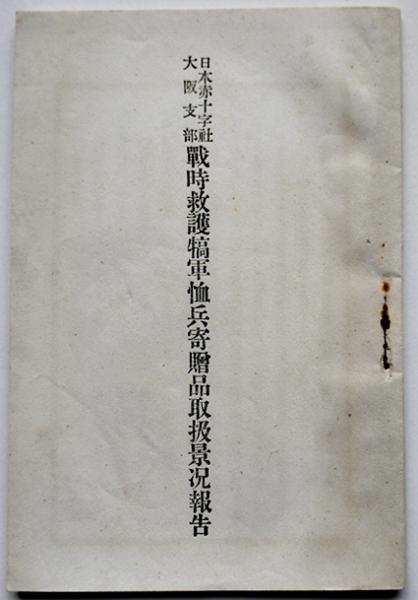 日本赤十字社
大阪支部
戰時救護犒軍恤兵寄贈品取扱景况報告